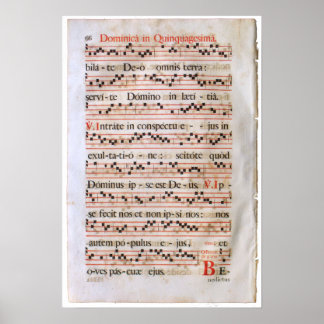 66 Dominica in Quinquagesima.
bilá - te De - ó omnis terra :
serví - te Dómino in lætí - tiâ,
V. Intráte in conspéctu e - jus in
exul - ta - ti - ó - ne : scitóte quòd
Dóminus ip - se est De - us. V. Ip
se fecit nos et non ip - si nos : nos
autem pópulus e - jus, et
o - ves páscuæ ejus. BE-
nedíctus